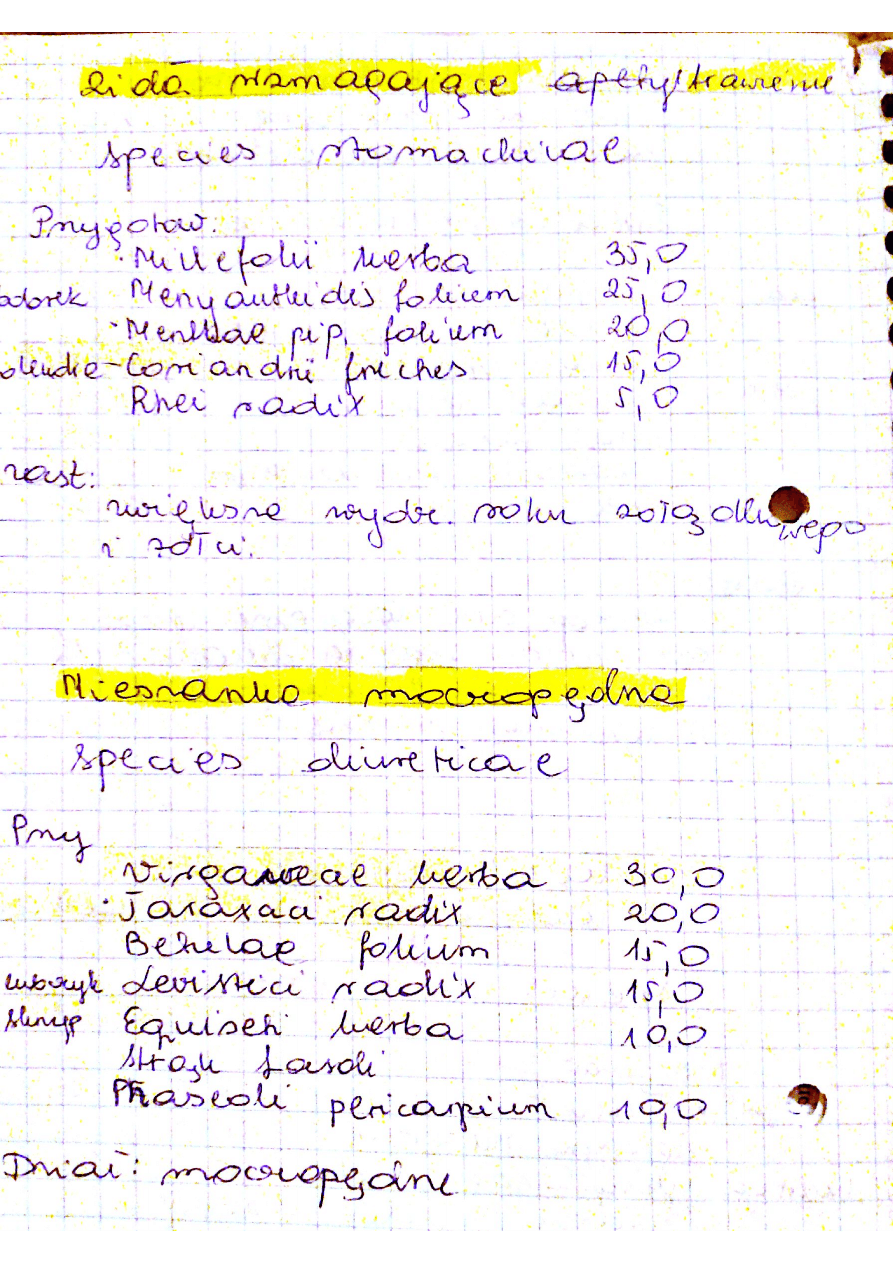 Zioła wzmagające apetyt/trawienie
species stomachicae
Przygotow:
· Millefolii herba 35,0
Menyanthidis folium 25,0
· Menthae pip. folium 20,0
- Coriandri fructus 15,0
Rhei radix 5,0
zast:
zwiększa wydz. soku żołądkowego
i żółci.
Mieszanka moczopędna
species diureticae
Przy
Virgaureae herba 30,0
· Taraxaci radix 20,0
Betulae folium 15,0
lubczyk Levistici radix 15,0
skrzyp Equiseti herba 10,0
strąk fasoli
Phaseoli pericarpium 10,0
Dział: moczopędne